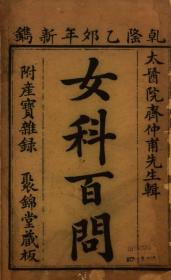 乾隆乙夘年新鐫
太醫院齊仲甫先生輯
女科百問
附產寶雜録
聚錦堂藏板